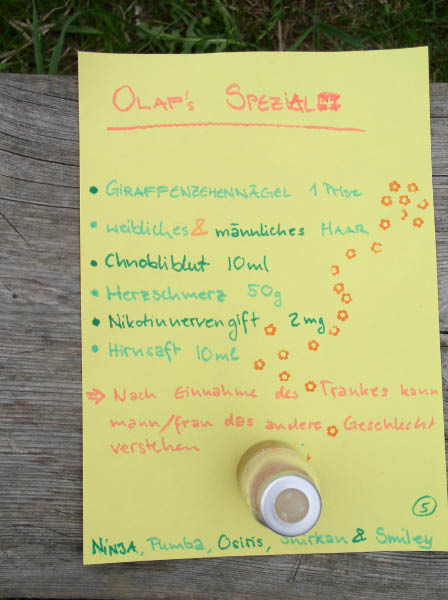 OLAF's SPEZIAL
• GIRAFFENZEHENNÄGEL 1 Prise
• weibliches & männliches HAAR
• Chnobliblut 10ml
• Herzschmerz 50g
• Nikotinnervengift 2mg
• Hirnsaft 10ml
⇒ Nach Einnahme des Trankes kann
mann/frau das andere Geschlecht
verstehen
5
NINJA, Pumba, Osiris, Shirkan & Smiley